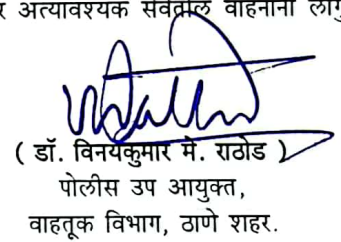 र अत्यावश्यक सेवेतील वाहनांना लागु
( डॉ. विनयकुमार मे. राठोड )
पोलीस उप आयुक्त,
वाहतूक विभाग, ठाणे शहर.